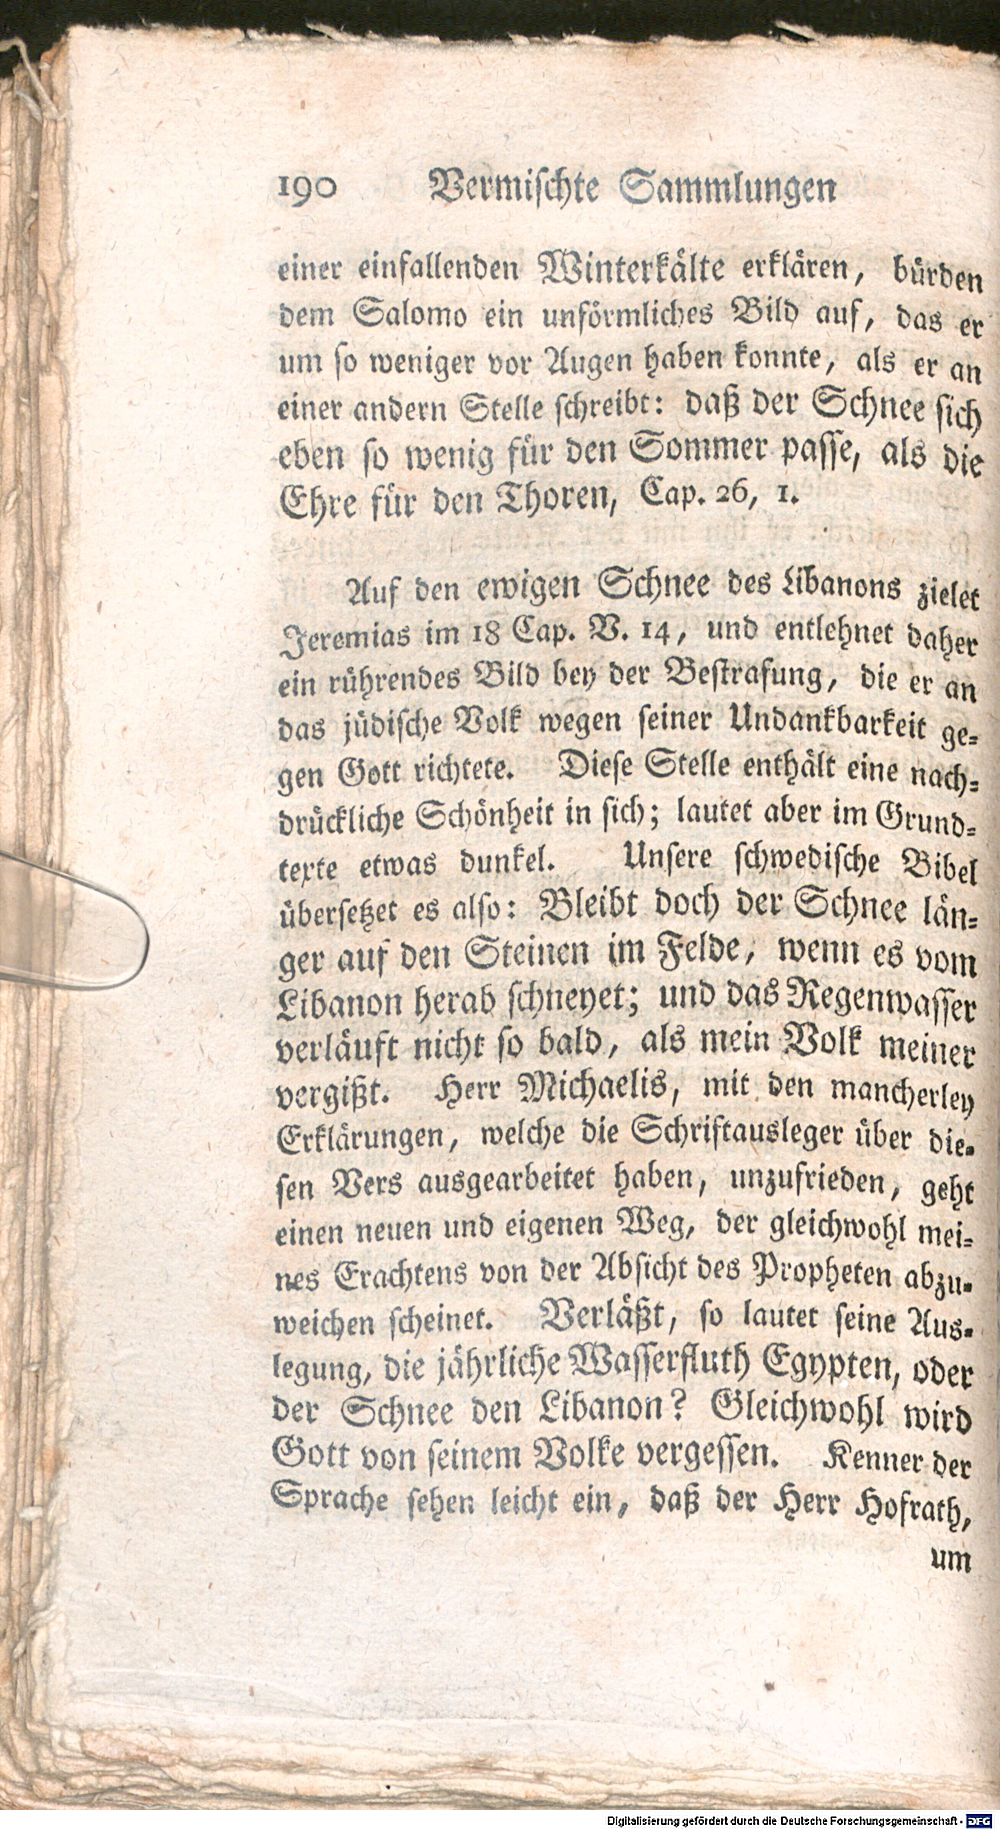 190 Vermischte Sammlungen
einer einfallenden Winterkälte erklären, bürden
dem Salomo ein unförmliches Bild auf, das er
um so weniger vor Augen haben konnte, als er an
einer andern Stelle schreibt: daß der Schnee sich
eben so wenig für den Sommer passe, als die
Ehre für den Thoren, Cap. 26, 1.
Auf den ewigen Schnee des Libanons zielet
Jeremias im 18 Cap. V. 14, und entlehnet daher
ein rührendes Bild bey der Bestrafung, die er an
das jüdische Volk wegen seiner Undankbarkeit ge-
gen Gott richtete. Diese Stelle enthält eine nach-
drückliche Schönheit in sich; lautet aber im Grund-
texte etwas dunkel. Unsere schwedische Bibel
übersetzet es also: Bleibt doch der Schnee län-
ger auf den Steinen im Felde, wenn es vom
Libanon herab schneyet; und das Regenwasser
verläuft nicht so bald, als mein Volk meiner
vergißt. Herr Michaelis, mit den mancherley
Erklärungen, welche die Schriftausleger über die-
sen Vers ausgearbeitet haben, unzufrieden, geht
einen neuen und eigenen Weg, der gleichwohl mei-
nes Erachtens von der Absicht des Propheten abzu-
weichen scheinet. Verläßt, so lautet seine Aus-
legung, die jährliche Wasserfluth Egypten, oder
der Schnee den Libanon? Gleichwohl wird
Gott von seinem Volke vergessen. Kenner der
Sprache sehen leicht ein, daß der Herr Hofrath,
um
Digitalisierung gefördert durch die Deutsche Forschungsgemeinschaft - DFG